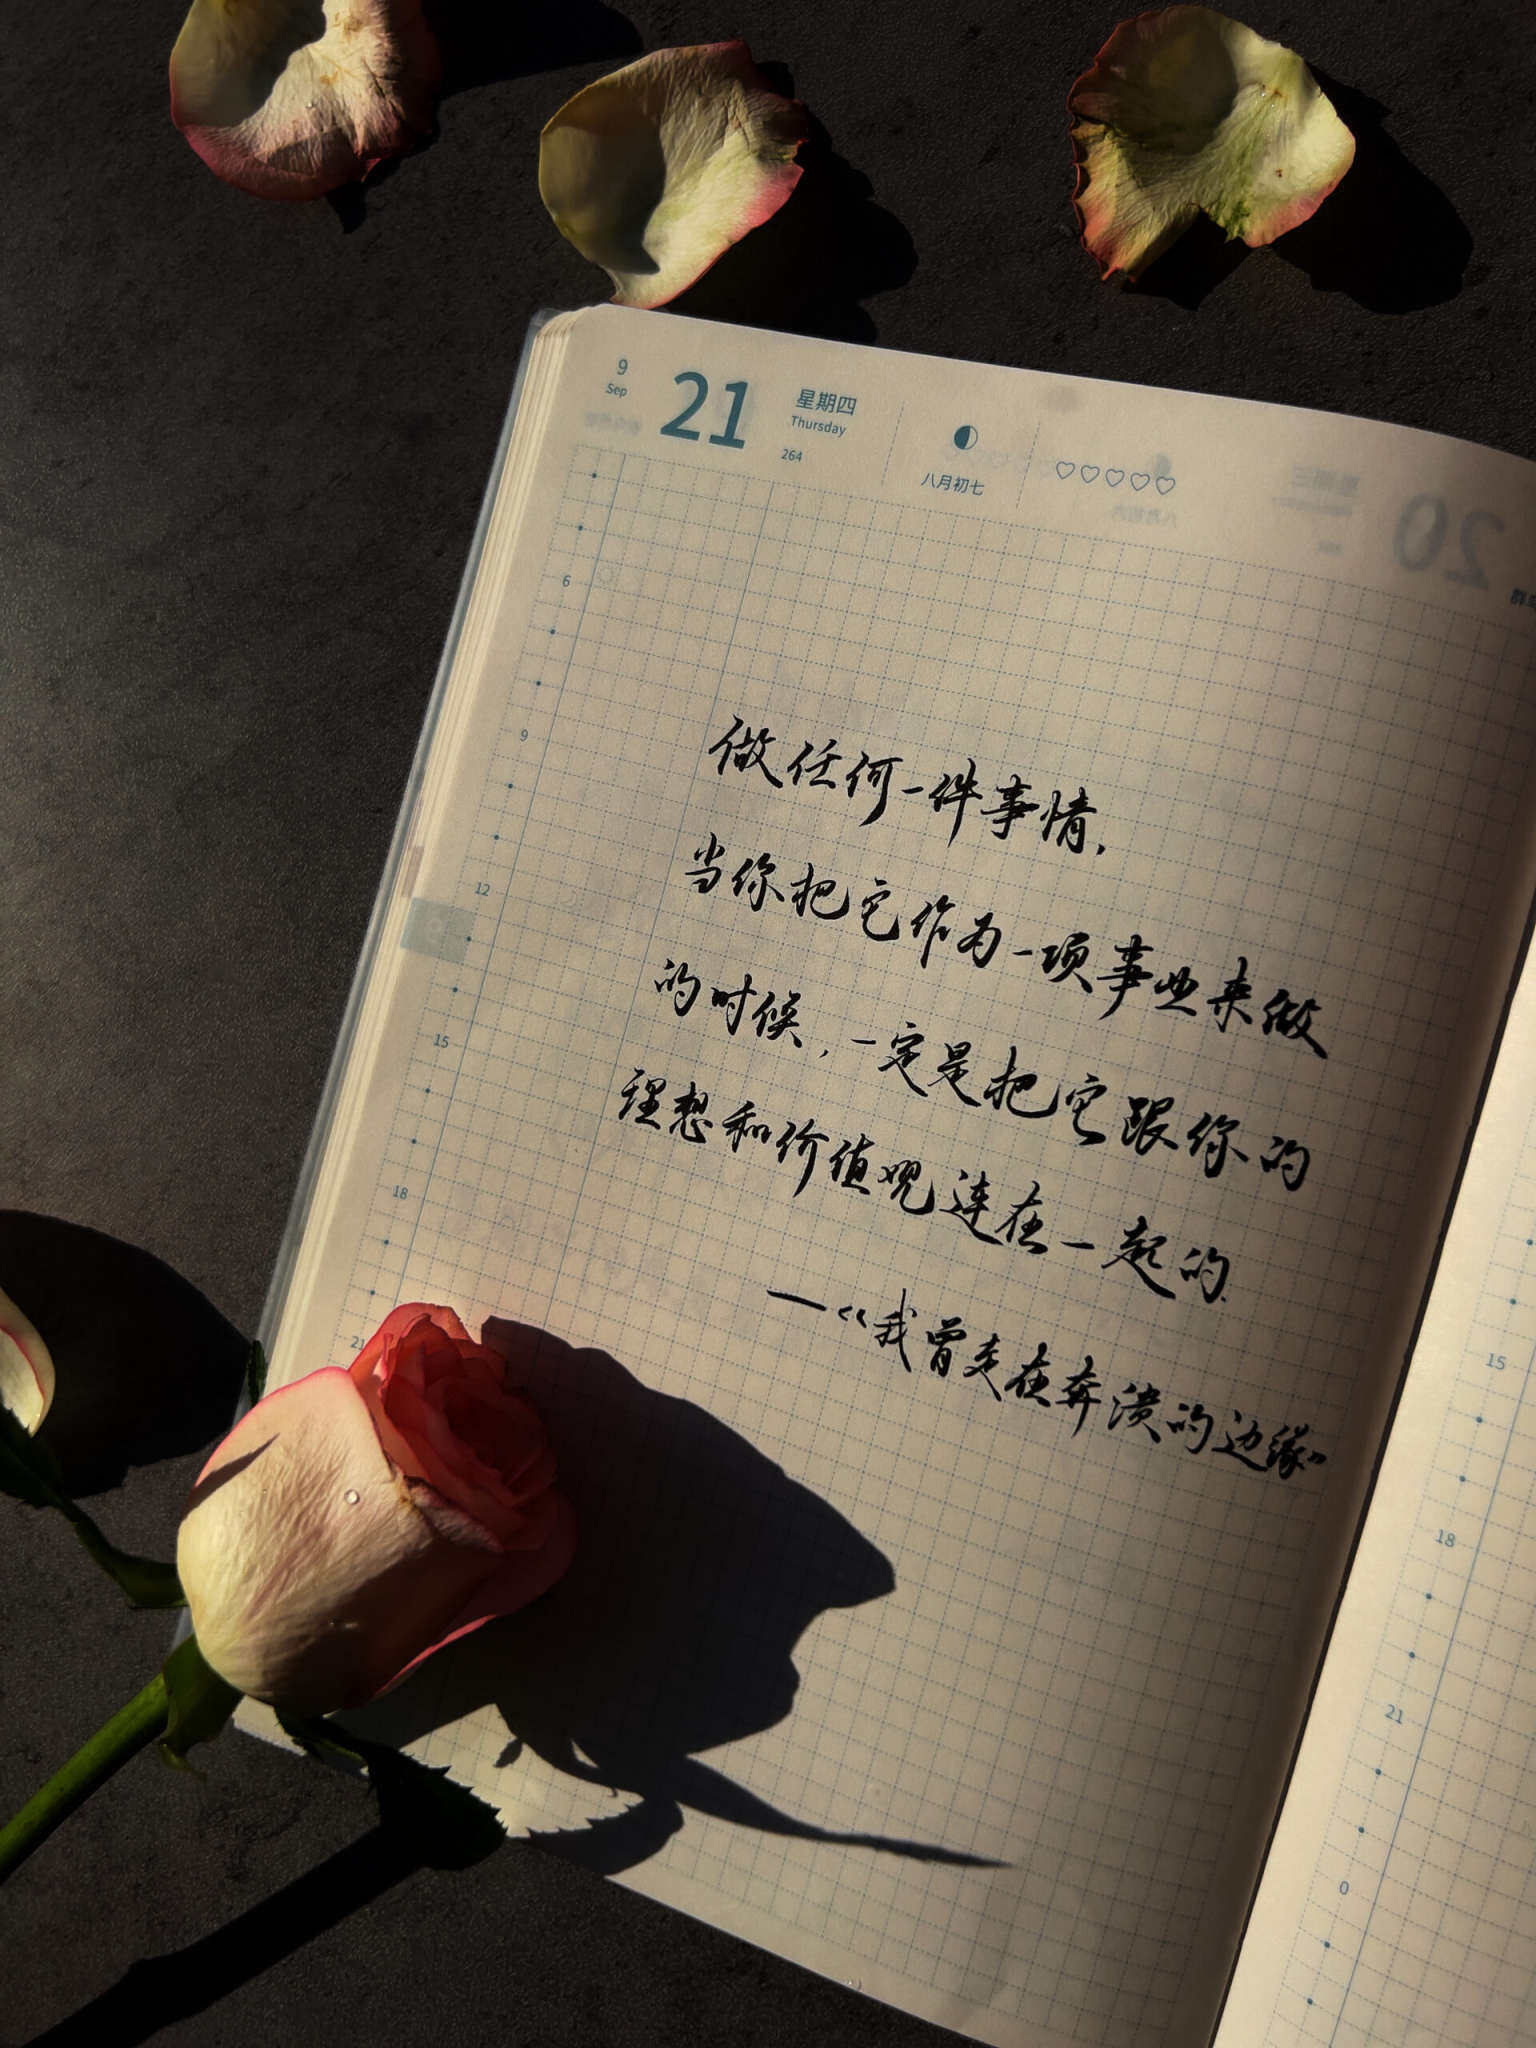 9
Sep
21
星期四
Thursday
264
八月初七
20
6
9
12
15
18
21
做任何一件事情，
当你把它作为一项事业来做
的时候，一定是把它跟你的
理想和价值观连在一起的.
—《我曾走在奔溃的边缘》
15
18
21
0